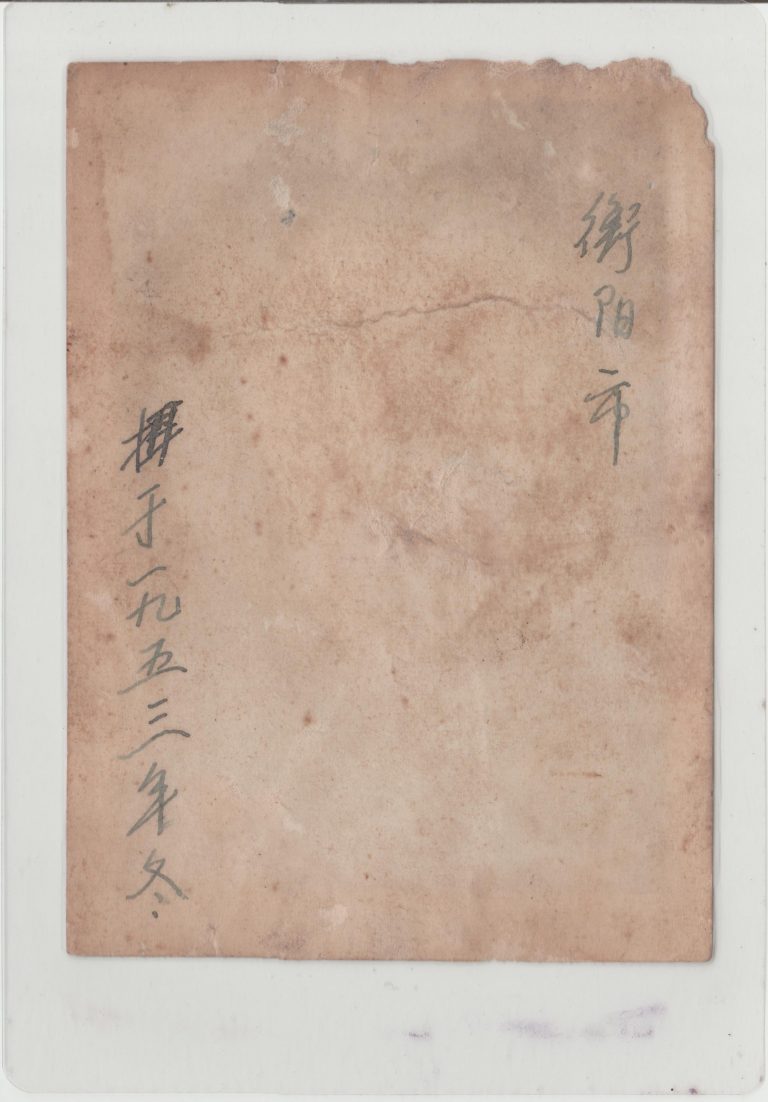 衡阳市
摄于一九五三年冬